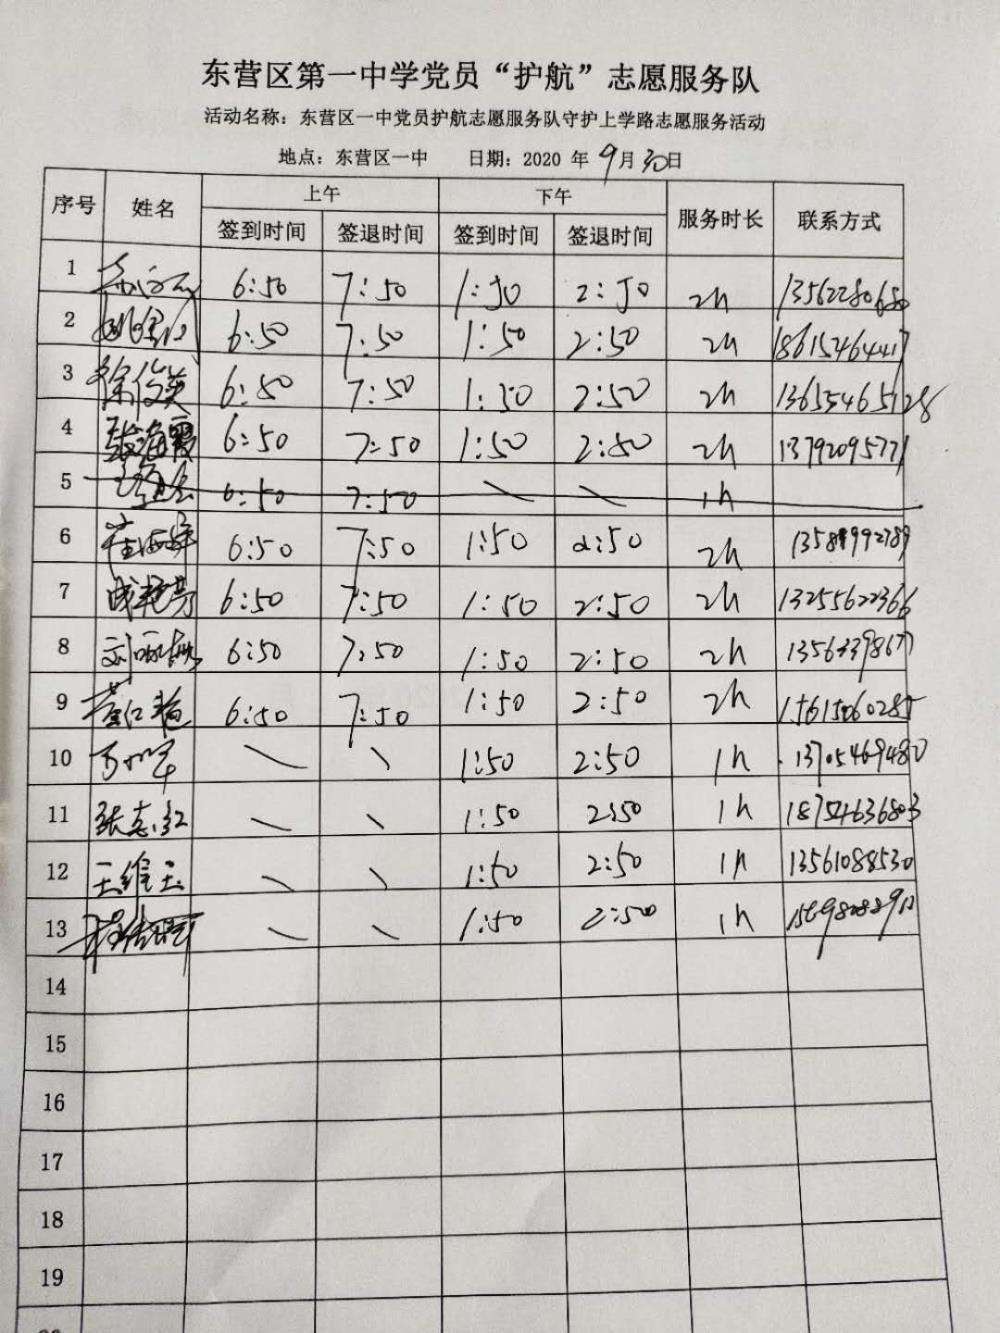 东营区第一中学党员“护航”志愿服务队
活动名称：东营区一中党员护航志愿服务队守护上学路志愿服务活动
地点：东营区一中 日期：2020 年 9月30日
序号 姓名 上午 下午 服务时长 联系方式
签到时间 签退时间 签到时间 签退时间
1 6:50 7:50 1:50 2:50 2h 13562280680
2 6:50 7:50 1:50 2:50 2h 18615464417
3 徐俊英 6:50 7:50 1:50 2:50 2h 13655465128
4 张海霞 6:50 7:50 1:50 2:50 2h 13792095771
5 6:50 7:50 \ \ 1h
6 崔海军 6:50 7:50 1:50 2:50 2h
7 成艳芳 6:50 7:50 1:50 2:50 2h 13255622366
8 6:50 7:50 1:50 2:50 2h
9 6:50 7:50 1:50 2:50 2h 15615060285
10 \ \ 1:50 2:50 1h 13705469480
11 张志红 \ \ 1:50 2:50 1h 18754636803
12 王维玉 \ \ 1:50 2:50 1h 13561088530
13 \ \ 1:50 2:50 1h
14
15
16
17
18
19